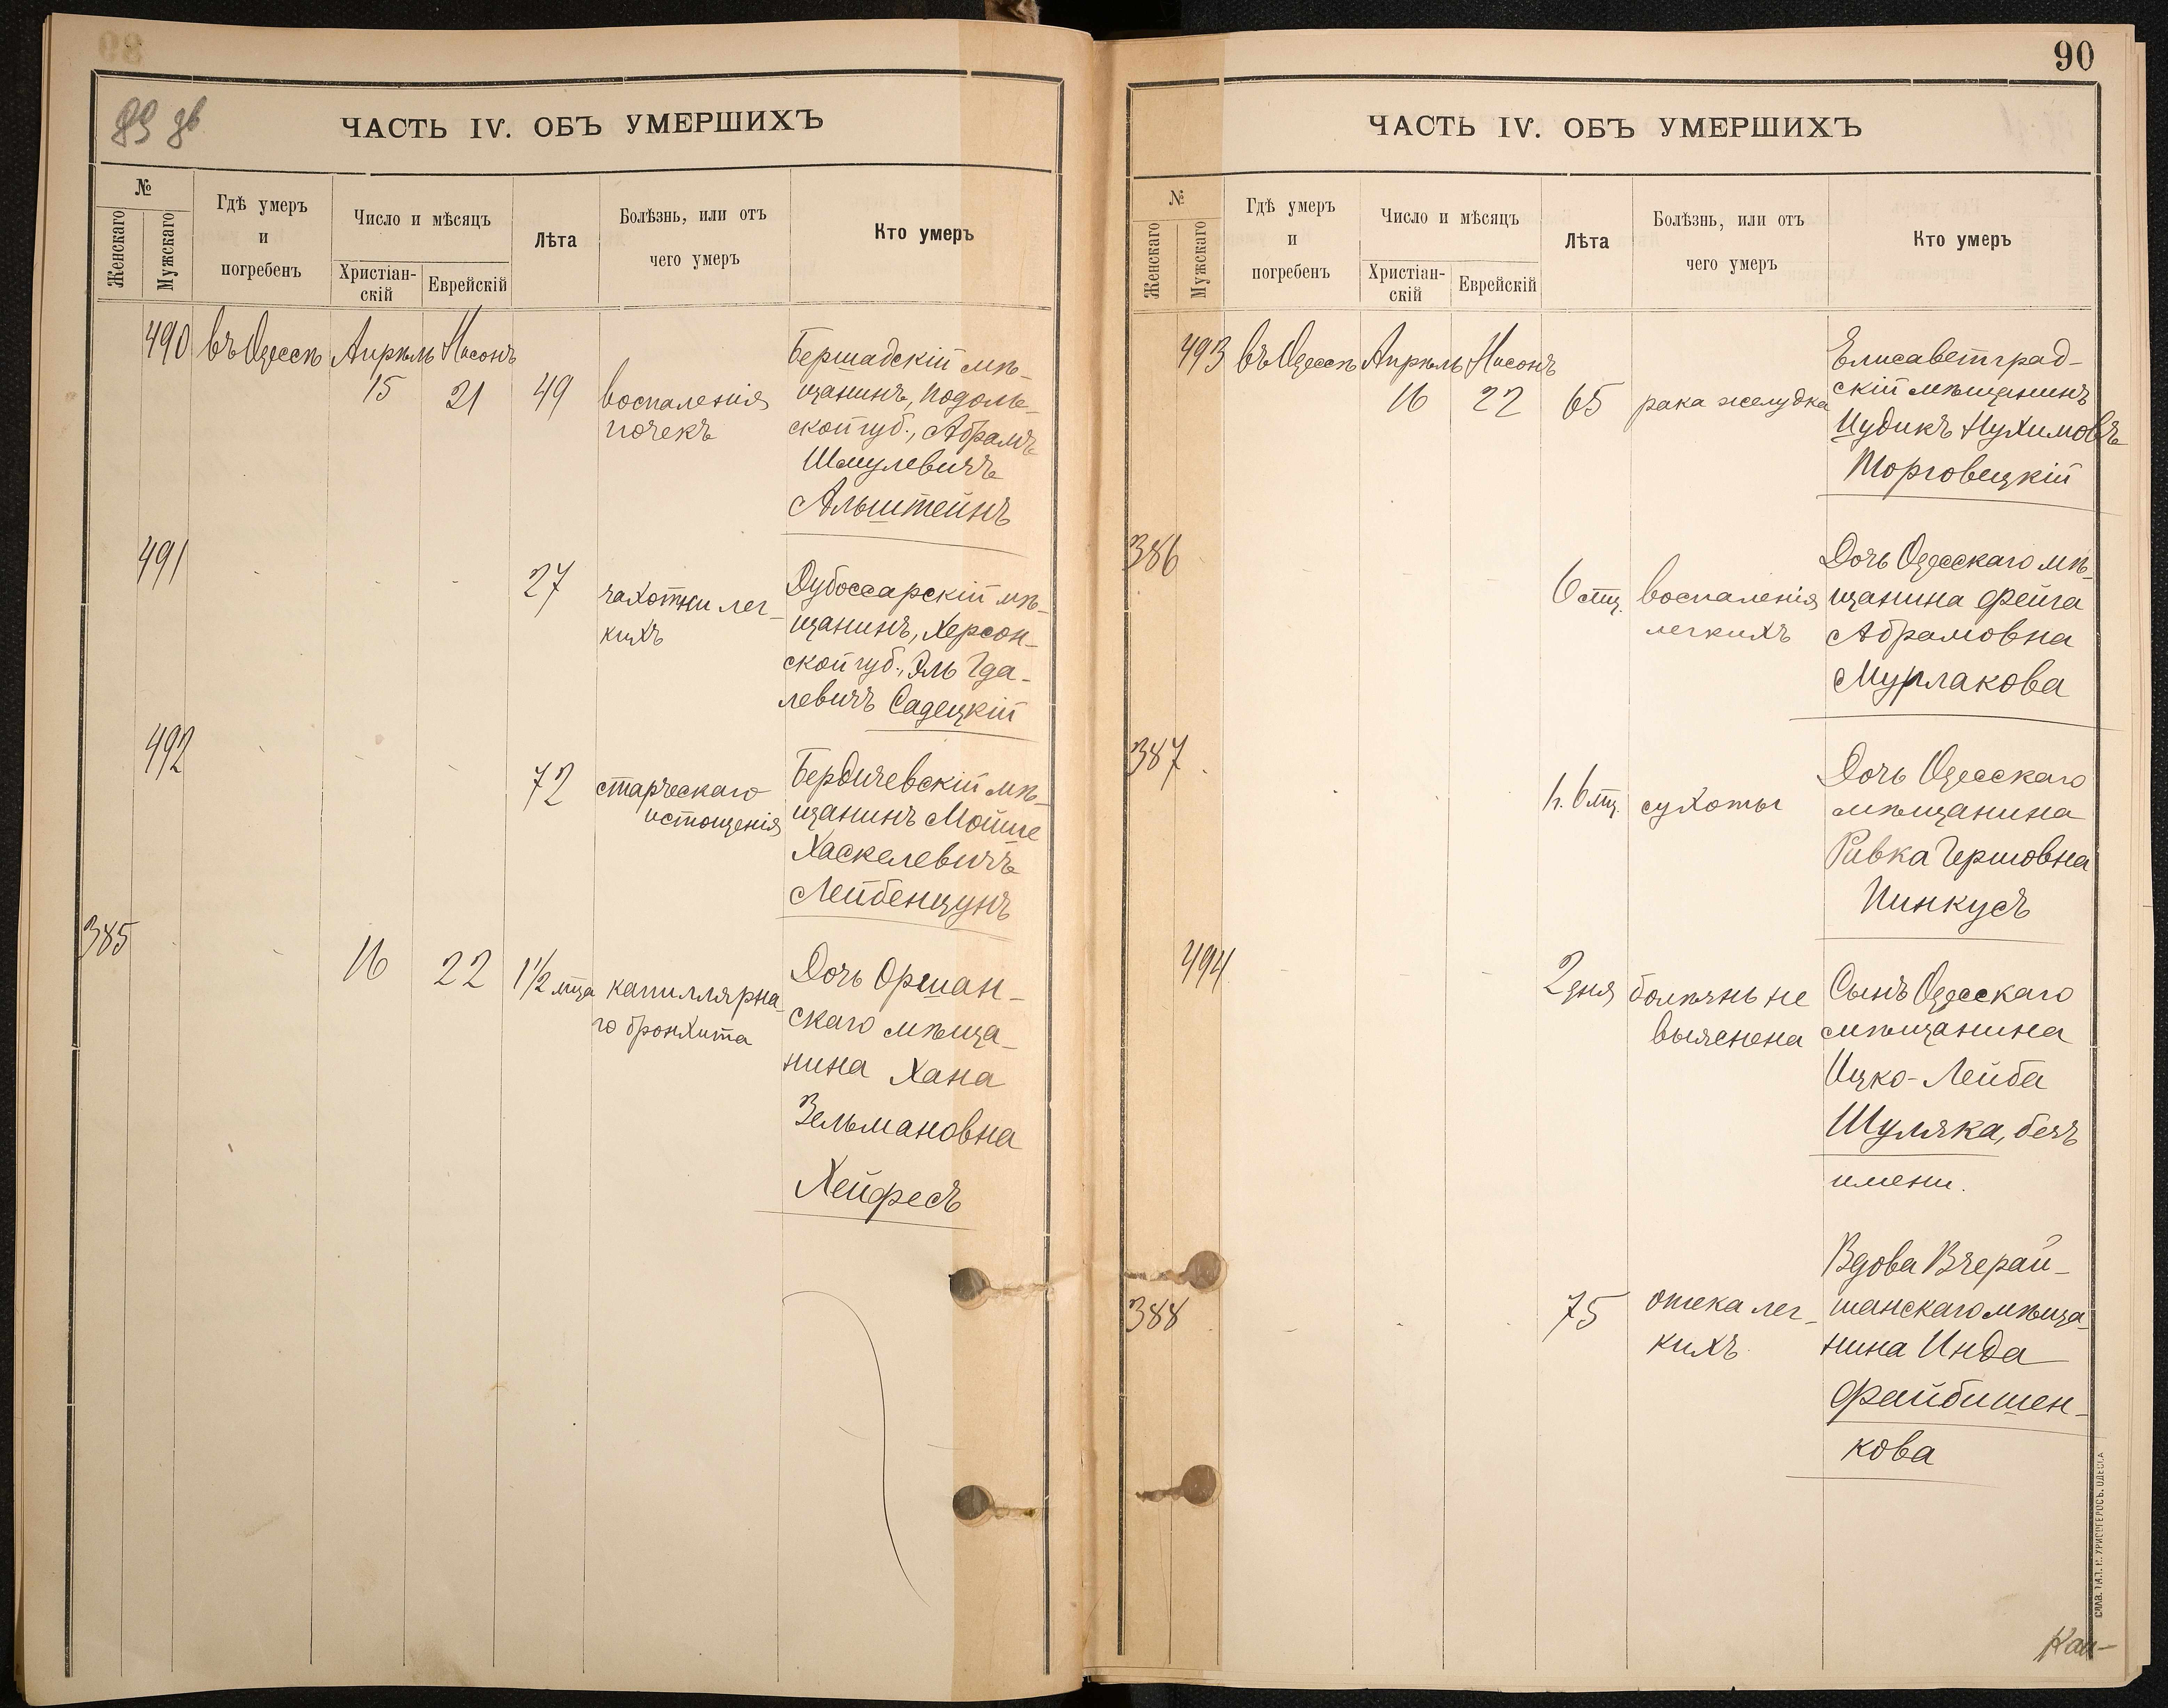 89 зв
ЧАСТЬ IV. ОБЪ УМЕРШИХЪ
№
Женскаго
Мужскаго
Гдѣ умеръ
и
погребенъ
Число и мѣсяцъ
Христіан-
скій
Еврейскій
Лѣта
Болѣзнь, или отъ
чего умеръ
Кто умеръ
490 въ Одессѣ Апрѣль Нисонъ
15 21 49
воспаленія
почекъ
Бершадскій мѣ-
щанинъ, Подоль-
ской губ., Абрамъ
Шмулевичъ
Альштейнъ
491
27
чахотки лег-
кихъ
Дубоссарскій мѣ-
щанинъ, Херсон-
ской губ., Эль Гда-
левичъ Садецкій
492
72
старческаго
истощенія
Бердичевскій мѣ-
щанинъ Мойше
Хаскелевичъ
Лейбенцунъ
385
16 22 1½ мца
капиллярна-
го бронхита
Дочь Оршан-
скаго мѣща-
нина Хана
Зельмановна
Хейфесъ
90
ЧАСТЬ IV. ОБЪ УМЕРШИХЪ
№
Женскаго
Мужскаго
Гдѣ умеръ
и
погребенъ
Число и мѣсяцъ
Христіан-
скій
Еврейскій
Лѣта
Болѣзнь, или отъ
чего умеръ
Кто умеръ
493 въ Одессѣ Апрѣль Нисонъ
16 22 65 рака желудка
Елисаветград-
скій мѣщанинъ
Иудикъ Нухимовъ
Торговецкій
386
6 мц.
воспаленія
легкихъ
Дочь Одесскаго мѣ-
щанина Фейга
Абрамовна
Мурлакова
387
1 г. 6 мц. сухоты
Дочь Одесскаго
мѣщанина
Ривка Гершовна
Пинкусъ
494
2 дня
болѣзнь не
выяснена
Сынъ Одесскаго
мѣщанина
Ицко-Лейба
Шуляка, безъ
имени.
388
75
отека лег-
кихъ
Вдова Вчерай-
шанскаго мѣща-
нина Инда
Файбишен-
кова
СЛАВ. ТИП. Н. ХРИСОГЕЛОСЪ. ОДЕССА